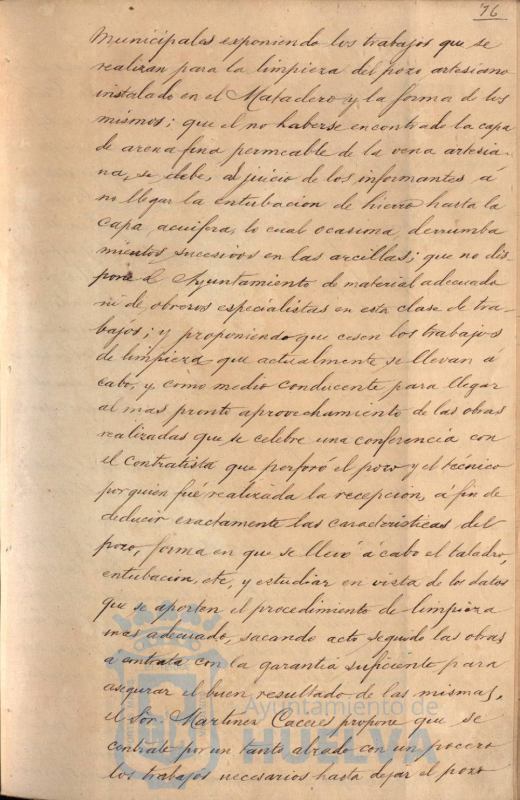 76
Municipales exponiendo los trabajos que se
realizan para la limpieza del pozo artesiano
instalado en el Matadero y la forma de los
mismos; que el no haberse encontrado la capa
de arena fina permeable de la vena artesia-
na, se debe, al juicio de los informantes á
no llegar la entubacion de hierro hasta la
capa acuifera, lo cual ocasiona, derrumba
mientos sucesivos en las arcillas; que no dis-
pone el Ayuntamiento de material adecuado
ni de obreros especialistas en esta clase de tra-
bajos; y proponiendo que cesen los trabajos
de limpieza que actualmente se llevan á
cabo, y, como medio conducente para llegar
al mas pronto aprovechamiento de las obras
realizadas que se celebre una conferencia con
el contratista que perforó el pozo y el técnico
por quien fué realizada la recepcion, á fin de
deducir exactamente las caracteristicas del
pozo, forma en que se llevó á cabo el taladro,
entubacion, etc, y estudiar en vista de los datos
que se aporten el procedimiento de limpieza
mas adecuado, sacando acto seguido las obras
a contrata con la garantia suficiente para
asegurar el buen resultado de las mismas,
el Sor. Martinez Caceres propone que se
contrate por un tanto alzado con un pocero
los trabajos necesarios hasta dejar el pozo
Ayuntamiento de
HUELVA